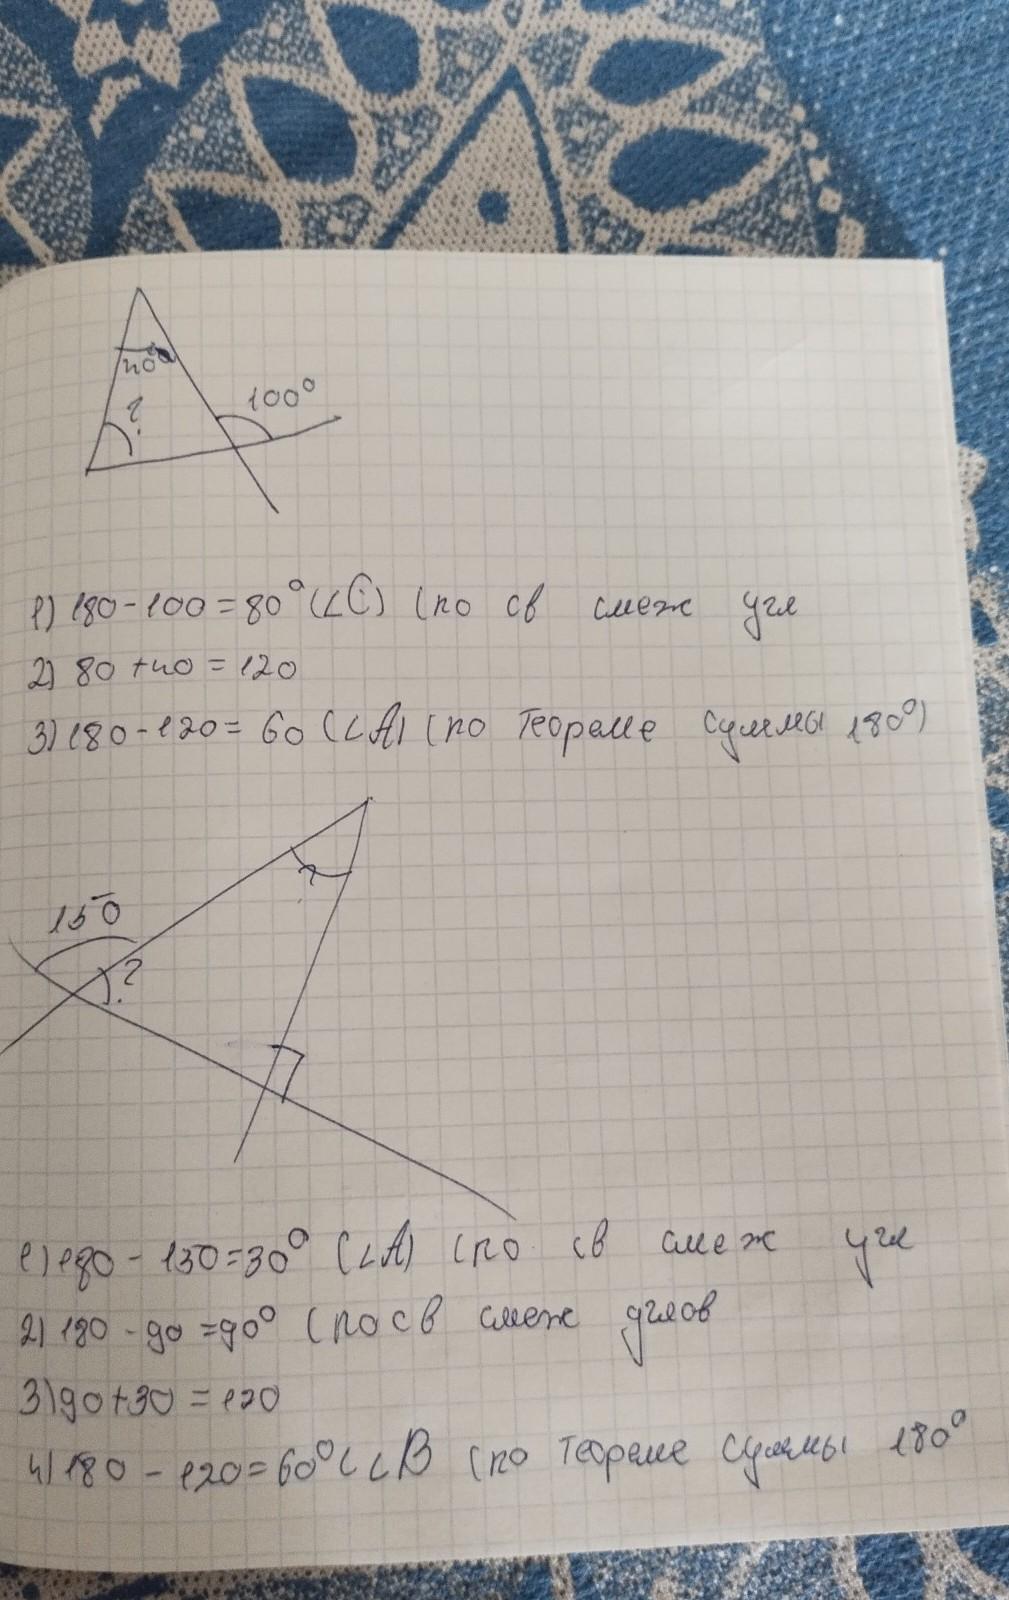 40°
?
100°
1) 180-100=80° (∠C) (по св смеж угл
2) 80+40=120
3) 180-120= 60 (∠A) (по теореме суммы 180°)
?
150
?
1) 180-150=30° (∠A) (по св смеж угл
2) 180-90=90° (по св смеж углов
3) 90+30=120
4) 180-120=60° (∠B (по теореме суммы 180°